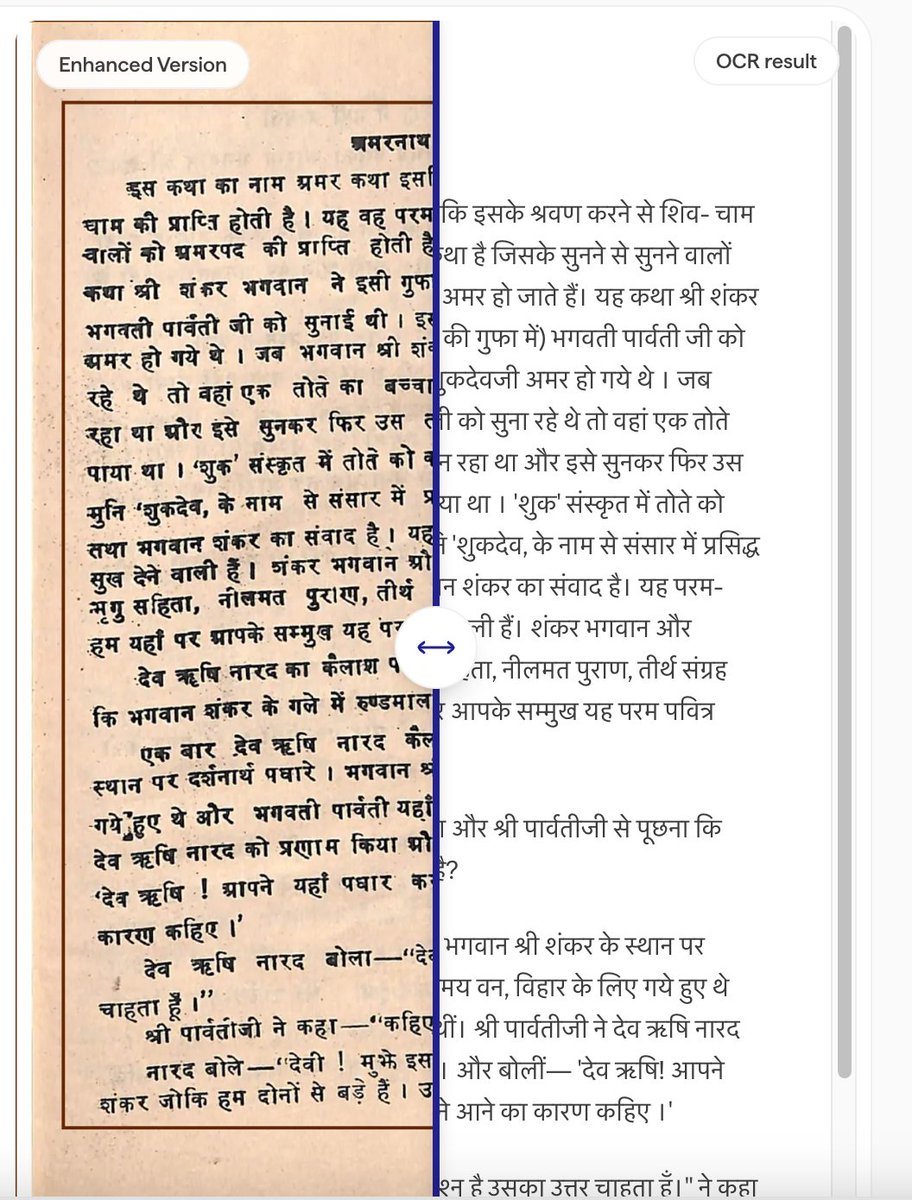 Enhanced Version
OCR result
श्रमरनाथ
इस कथा का नाम अमर कथा इस
चाम की प्राप्ति होती है । यह वह परम
वालों को अमरपद की प्राप्ति होती है
कथा श्री शंकर भगवान ने इसी गुफा
भगवती पार्वती जी को सुनाई थी ।
अमर हो गये थे । जब भगवान श्री
रहे थे तो वहां एक तोते का बच्चा
रहा था और इसे सुनकर फिर उस
पाया था । ‘शुक’ संस्कृत में तोते को
मुनि ‘शुकदेव, के नाम से संसार में
तथा भगवान शंकर का संवाद है । यह
सुख देने वाली हैं । शंकर भगवान
भृगु सहिता, नीलमत पुराण, तीर्थ
हम यहाँ पर आपके सम्मुख यह
देव ऋषि नारद का कैलाश
कि भगवान शंकर के गले में रुण्डमाल
एक बार देव ऋषि नारद
स्थान पर दर्शनार्थ पधारे । भगवान
गये हुए थे और भगवती पार्वती यहाँ
देव ऋषि नारद को प्रणाम किया
‘देव ऋषि ! आपने यहाँ पधार
कारण कहिए ।’
देव ऋषि नारद बोला—“
चाहता हूँ ।”
श्री पार्वतीजी ने कहा—“कहिए
नारद बोले—“देवी ! मुझे इस
शंकर जोकि हम दोनों से बड़े हैं ।
कि इसके श्रवण करने से शिव- चाम
है जिसके सुनने से सुनने वालों
अमर हो जाते हैं। यह कथा श्री शंकर
की गुफा में) भगवती पार्वती जी को
अमर हो गये थे । जब
को सुना रहे थे तो वहां एक तोते
रहा था और इसे सुनकर फिर उस
था । 'शुक' संस्कृत में तोते को
'शुकदेव, के नाम से संसार में प्रसिद्ध
शंकर का संवाद है। यह परम-
हैं। शंकर भगवान और
नीलमत पुराण, तीर्थ संग्रह
आपके सम्मुख यह परम पवित्र
और श्री पार्वतीजी से पूछना कि
है?
भगवान श्री शंकर के स्थान पर
वन, विहार के लिए गये हुए थे
श्री पार्वतीजी ने देव ऋषि नारद
। और बोलीं— 'देव ऋषि! आपने
आने का कारण कहिए ।'
है उसका उत्तर चाहता हूँ।" ने कहा